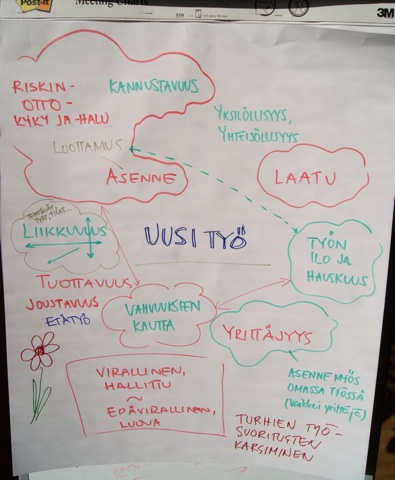 Post-it
Meeting Charts
3M
RISKIN-
OTTO-
KYKY JA HALU
KANNUSTAVUUS
YKSILÖLLISYYS,
YHTEISÖLLISYYS
LUOTTAMUS
ASENNE
LAATU
LIIKKUVUUS
UUSI TYÖ
TYÖN
ILO JA
HAUSKUUS
TUOTTAVUUS
JOUSTAVUUS
ETÄTYÖ
VAHVUUKSIEN
KAUTTA
YRITTÄJYYS
ASENNE MYÖS
OMASSA TYÖSSÄ
VIRALLINEN,
HALLITTU
~
EPÄVIRALLINEN,
LUOVA
TURHIEN TYÖ-
SUORITUSTEN
KARSIMINEN